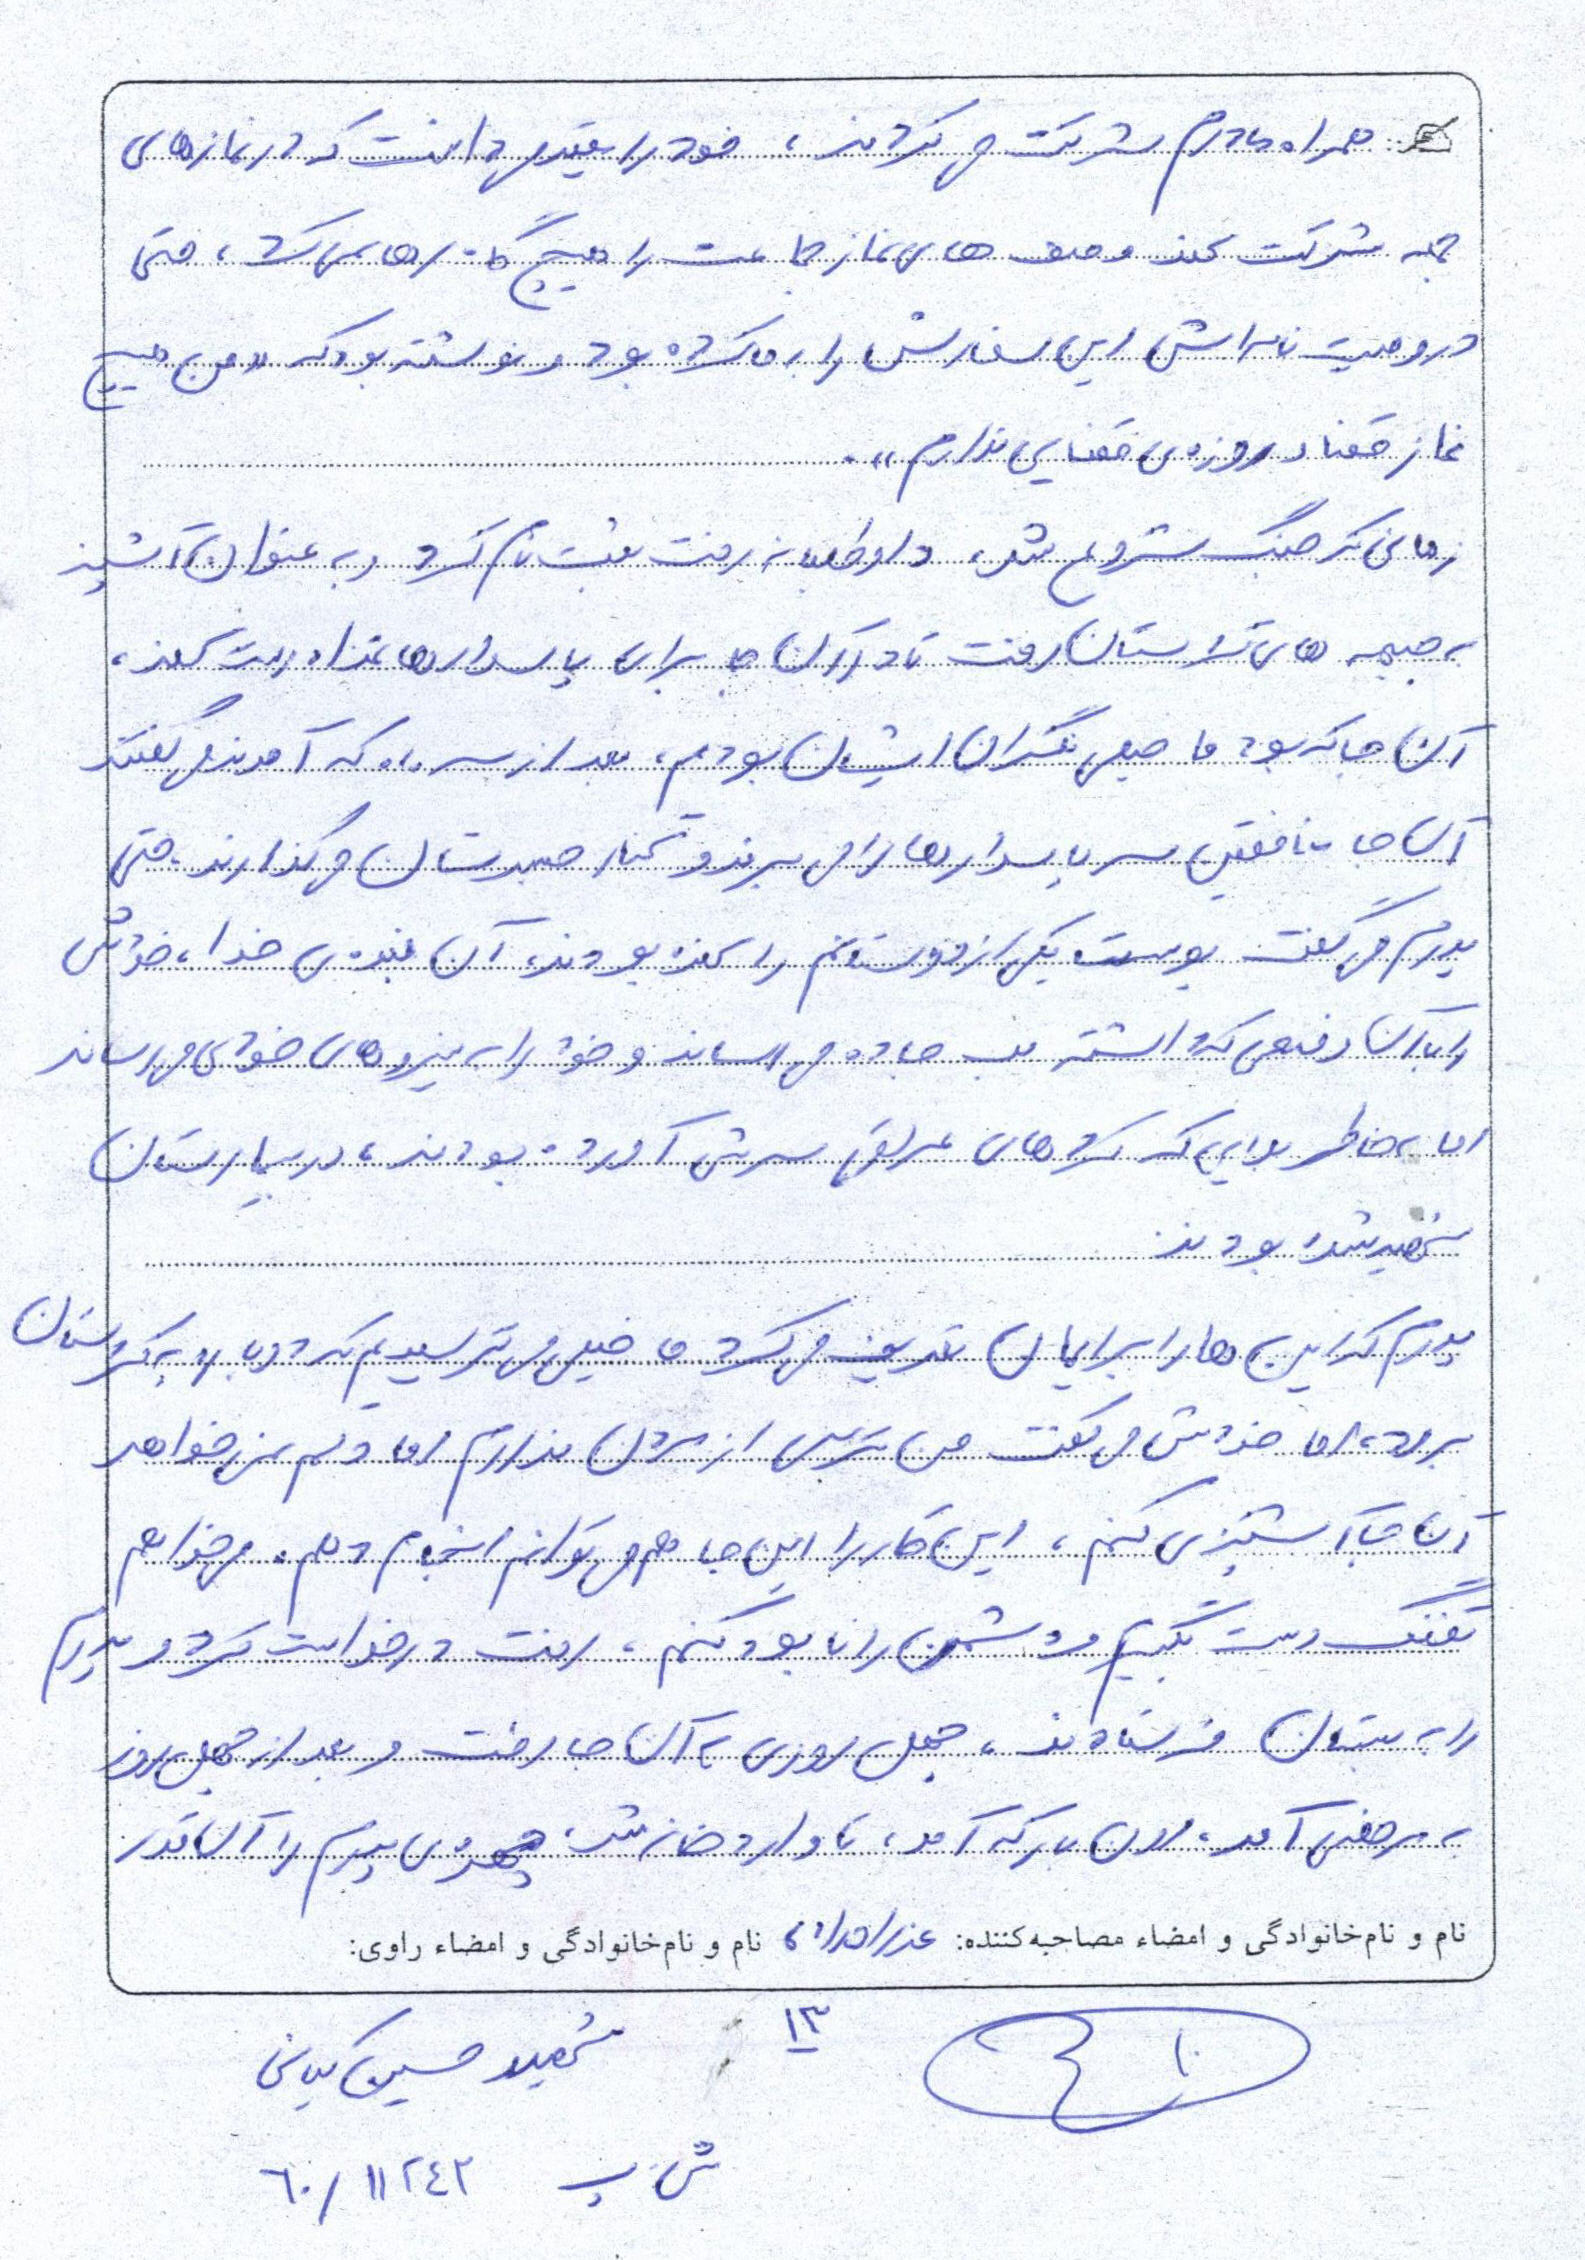 همراه مادرم شرکت می‌کردند، خود را مقید می‌دانست که در نمازهای
جمعه شرکت کند و صف های نماز جماعت را هیچ گاه رها نمی‌کرد، حتی
در وصیت نامه‌اش این سفارش را به ما کرده بود و نوشته بود که «من هیچ
نماز قضا و روزه‌ی قضایی ندارم».
زمانی که جنگ شروع شد، داوطلبانه رفت ثبت نام کرد و به عنوان آشپز
به جبهه های کردستان رفت تا در آن جا برای پاسدارها غذا درست کند،
آن جا که بود ما خیلی نگران ایشان بودیم، بعد از سه ماه که آمدند می‌گفتند
آن جا منافقین سر پاسدارها را می‌برند و کنار جسدشان می‌گذارند. حتی
پدرم می‌گفت پوست یکی از دوستانم را کنده بودند، آن بنده‌ی خدا، خودش
را با آن وضعی که داشته لب جاده می‌رساند و خود را به نیروهای خودی می‌رساند
اما به خاطر بلایی که کردهای عراقی سرش آورده بودند، در بیمارستان
شهید شده بودند
پدرم که این ها را برایمان تعریف می‌کرد ما خیلی می‌ترسیدیم که دوباره به کردستان
برود، اما خودش می‌گفت من ترسی از مردن ندارم اما دلم نمی‌خواهد
آن جا آشپزی کنم، این کار را این جا هم می‌توانم انجام دهم. می‌خواهم
تفنگ دست بگیرم و دشمن را نابود کنم، رفت درخواست کرد و پدرم
را به بستان فرستادند، چهل روزی به آن جا رفت و بعد از چهل روز
به مرخصی آمد. اون بار که آمد، تا وارد خانه شد، چهره‌ی پدرم را آن قدر
نام و نام‌خانوادگی و امضاء مصاحبه‌کننده: عذرا نام و نام‌خانوادگی و امضاء راوی:
۱۳
شهید حسین کیانی
ش پ ۶۰/۱۱۲۴۲